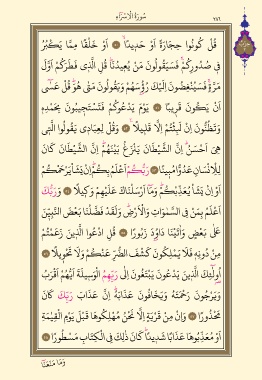 سُورَةُ الْإِسْرَاءِ
٢٨٦
قُلْ كُونُوا حِجَارَةً أَوْ حَدِيدًا ۝ أَوْ خَلْقًا مِمَّا يَكْبُرُ
فِي صُدُورِكُمْ فَسَيَقُولُونَ مَنْ يُعِيدُنَا قُلِ الَّذِي فَطَرَكُمْ أَوَّلَ
مَرَّةٍ فَسَيُنْغِضُونَ إِلَيْكَ رُؤُسَهُمْ وَيَقُولُونَ مَتَى هُوَ قُلْ عَسَى
أَنْ يَكُونَ قَرِيبًا ۝ يَوْمَ يَدْعُوكُمْ فَتَسْتَجِيبُونَ بِحَمْدِهِ
وَتَظُنُّونَ إِنْ لَبِثْتُمْ إِلَّا قَلِيلًا ۝ وَقُلْ لِعِبَادِي يَقُولُوا الَّتِي
هِيَ أَحْسَنُ إِنَّ الشَّيْطَانَ يَنْزَغُ بَيْنَهُمْ إِنَّ الشَّيْطَانَ كَانَ
لِلْإِنْسَانِ عَدُوًّا مُبِينًا ۝ رَبُّكُمْ أَعْلَمُ بِكُمْ إِنْ يَشَأْ يَرْحَمْكُمْ
أَوْ إِنْ يَشَأْ يُعَذِّبْكُمْ وَمَا أَرْسَلْنَاكَ عَلَيْهِمْ وَكِيلًا ۝ وَرَبُّكَ
أَعْلَمُ بِمَنْ فِي السَّمٰوَاتِ وَالْأَرْضِ وَلَقَدْ فَضَّلْنَا بَعْضَ النَّبِيِّنَ
عَلَى بَعْضٍ وَآتَيْنَا دَاوُدَ زَبُورًا ۝ قُلِ ادْعُوا الَّذِينَ زَعَمْتُمْ
مِنْ دُونِهِ فَلَا يَمْلِكُونَ كَشْفَ الضُّرِّ عَنْكُمْ وَلَا تَحْوِيلًا ۝
أُولٰئِكَ الَّذِينَ يَدْعُونَ يَبْتَغُونَ إِلَى رَبِّهِمُ الْوَسِيلَةَ أَيُّهُمْ أَقْرَبُ
وَيَرْجُونَ رَحْمَتَهُ وَيَخَافُونَ عَذَابَهُ إِنَّ عَذَابَ رَبِّكَ كَانَ
مَحْذُورًا ۝ وَإِنْ مِنْ قَرْيَةٍ إِلَّا نَحْنُ مُهْلِكُوهَا قَبْلَ يَوْمِ الْقِيٰمَةِ
أَوْ مُعَذِّبُوهَا عَذَابًا شَدِيدًا كَانَ ذٰلِكَ فِي الْكِتَابِ مَسْطُورًا ۝
وَمَا مَنَعَنَا